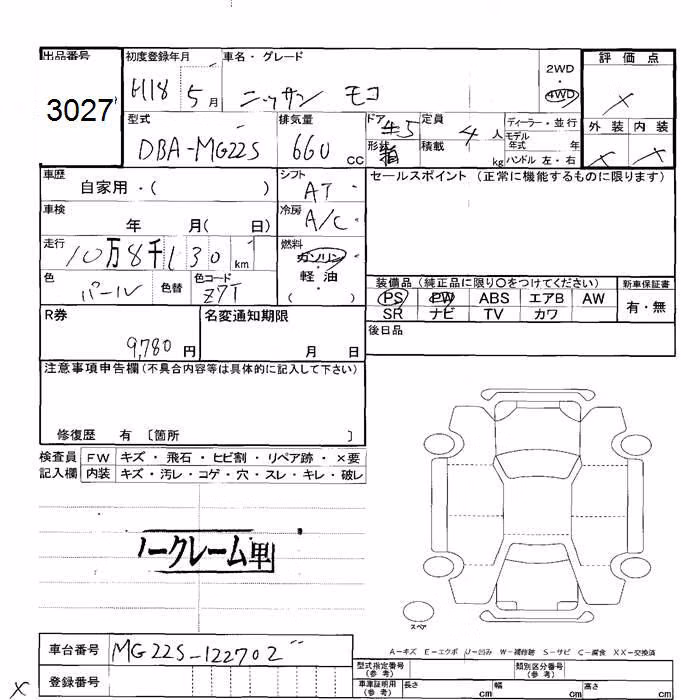 出品番号
3027
初度登録年月
H18 5月
車名・グレード
ニッサン モコ
2WD
・
4WD
評価点
×
外装 内装
× ×
型式
DBA-MG22S
排気量
660 cc
ドア
5
形状
箱
定員
4 人
積載
kg
ディーラー・並行
モデル
年式 年
ハンドル 左・右
車歴
自家用・( )
シフト
AT
セールスポイント (正常に機能するものに限ります)
車検
年 月( 日)
冷房
A/C
走行
10万8千130 km
燃料
ガソリン
・
軽油
( )
色
パール
色替
色コード
Z7T
装備品 (純正品に限り○をつけてください)
PS PW ABS エアB AW
SR ナビ TV カワ
新車保証書
有・無
R券
9,780 円
名変通知期限
月 日
後日品
注意事項申告欄 (不具合内容等は具体的に記入して下さい)
修復歴 有 〔箇所 〕
検査員 FW キズ・飛石・ヒビ割・リペア跡・×要
記入欄 内装 キズ・汚レ・コゲ・穴・スレ・キレ・破レ
ノークレーム
スペア
A-キズ E-エクボ U-凹み W-補修跡 S-サビ C-腐食 XX-交換済
車台番号 MG22S-122702
登録番号
型式指定番号
(参考)
類別区分番号
(参考)
車庫証明用
(参考)
長さ cm 幅 cm 高さ cm
×